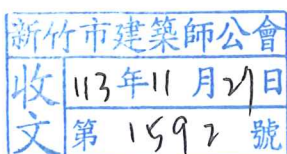 新竹市建築師公會
收文
113年11月27日
第1592號